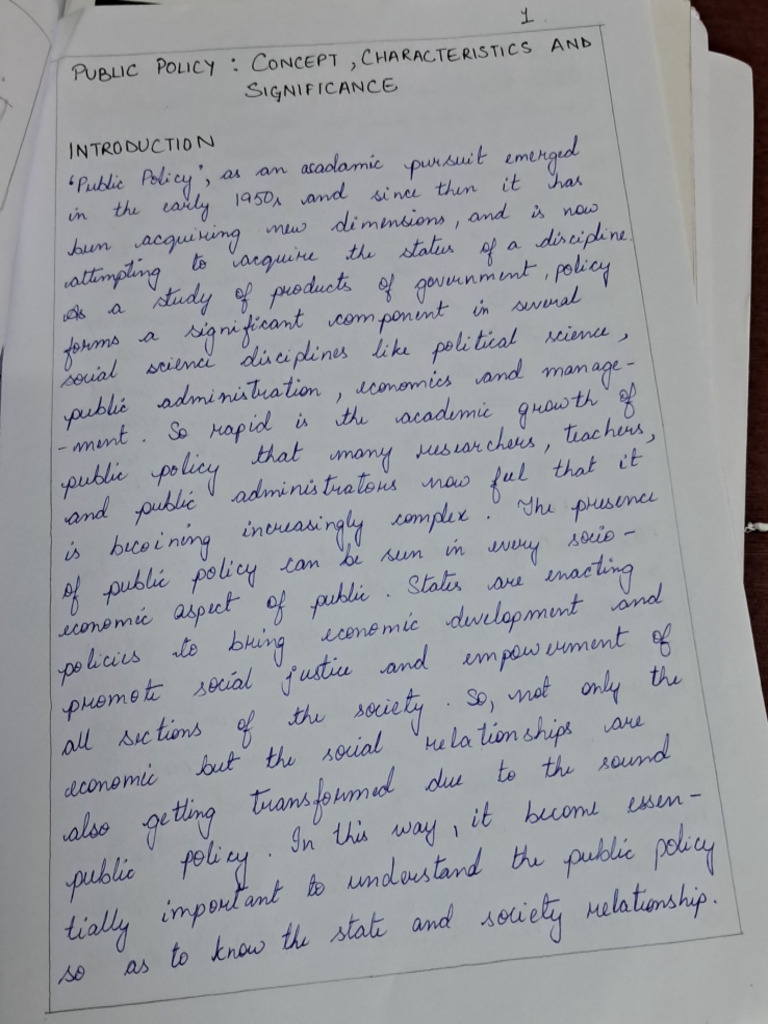 1.
PUBLIC POLICY : CONCEPT, CHARACTERISTICS AND
SIGNIFICANCE
INTRODUCTION
'Public Policy', as an acadamic pursuit emerged
in the early 1950s and since then it has
been acquiring new dimensions, and is now
attempting to acquire the status of a discipline.
As a study of products of government, policy
forms a significant component in several
social science disciplines like political science,
public administration, economics and manage-
-ment. So rapid is the academic growth of
public policy that many researchers, teachers,
and public administrators now feel that it
is becoining increasingly complex. The presence
of public policy can be seen in every socio-
economic aspect of public. States are enacting
policies to bring economic development and
promote social justice and empowerment of
all sections of the society. So, not only the
economic but the social relationships are
also getting transformed due to the sound
public policy. In this way, it become essen-
tially important to understand the public policy
so as to know the state and society relationship.